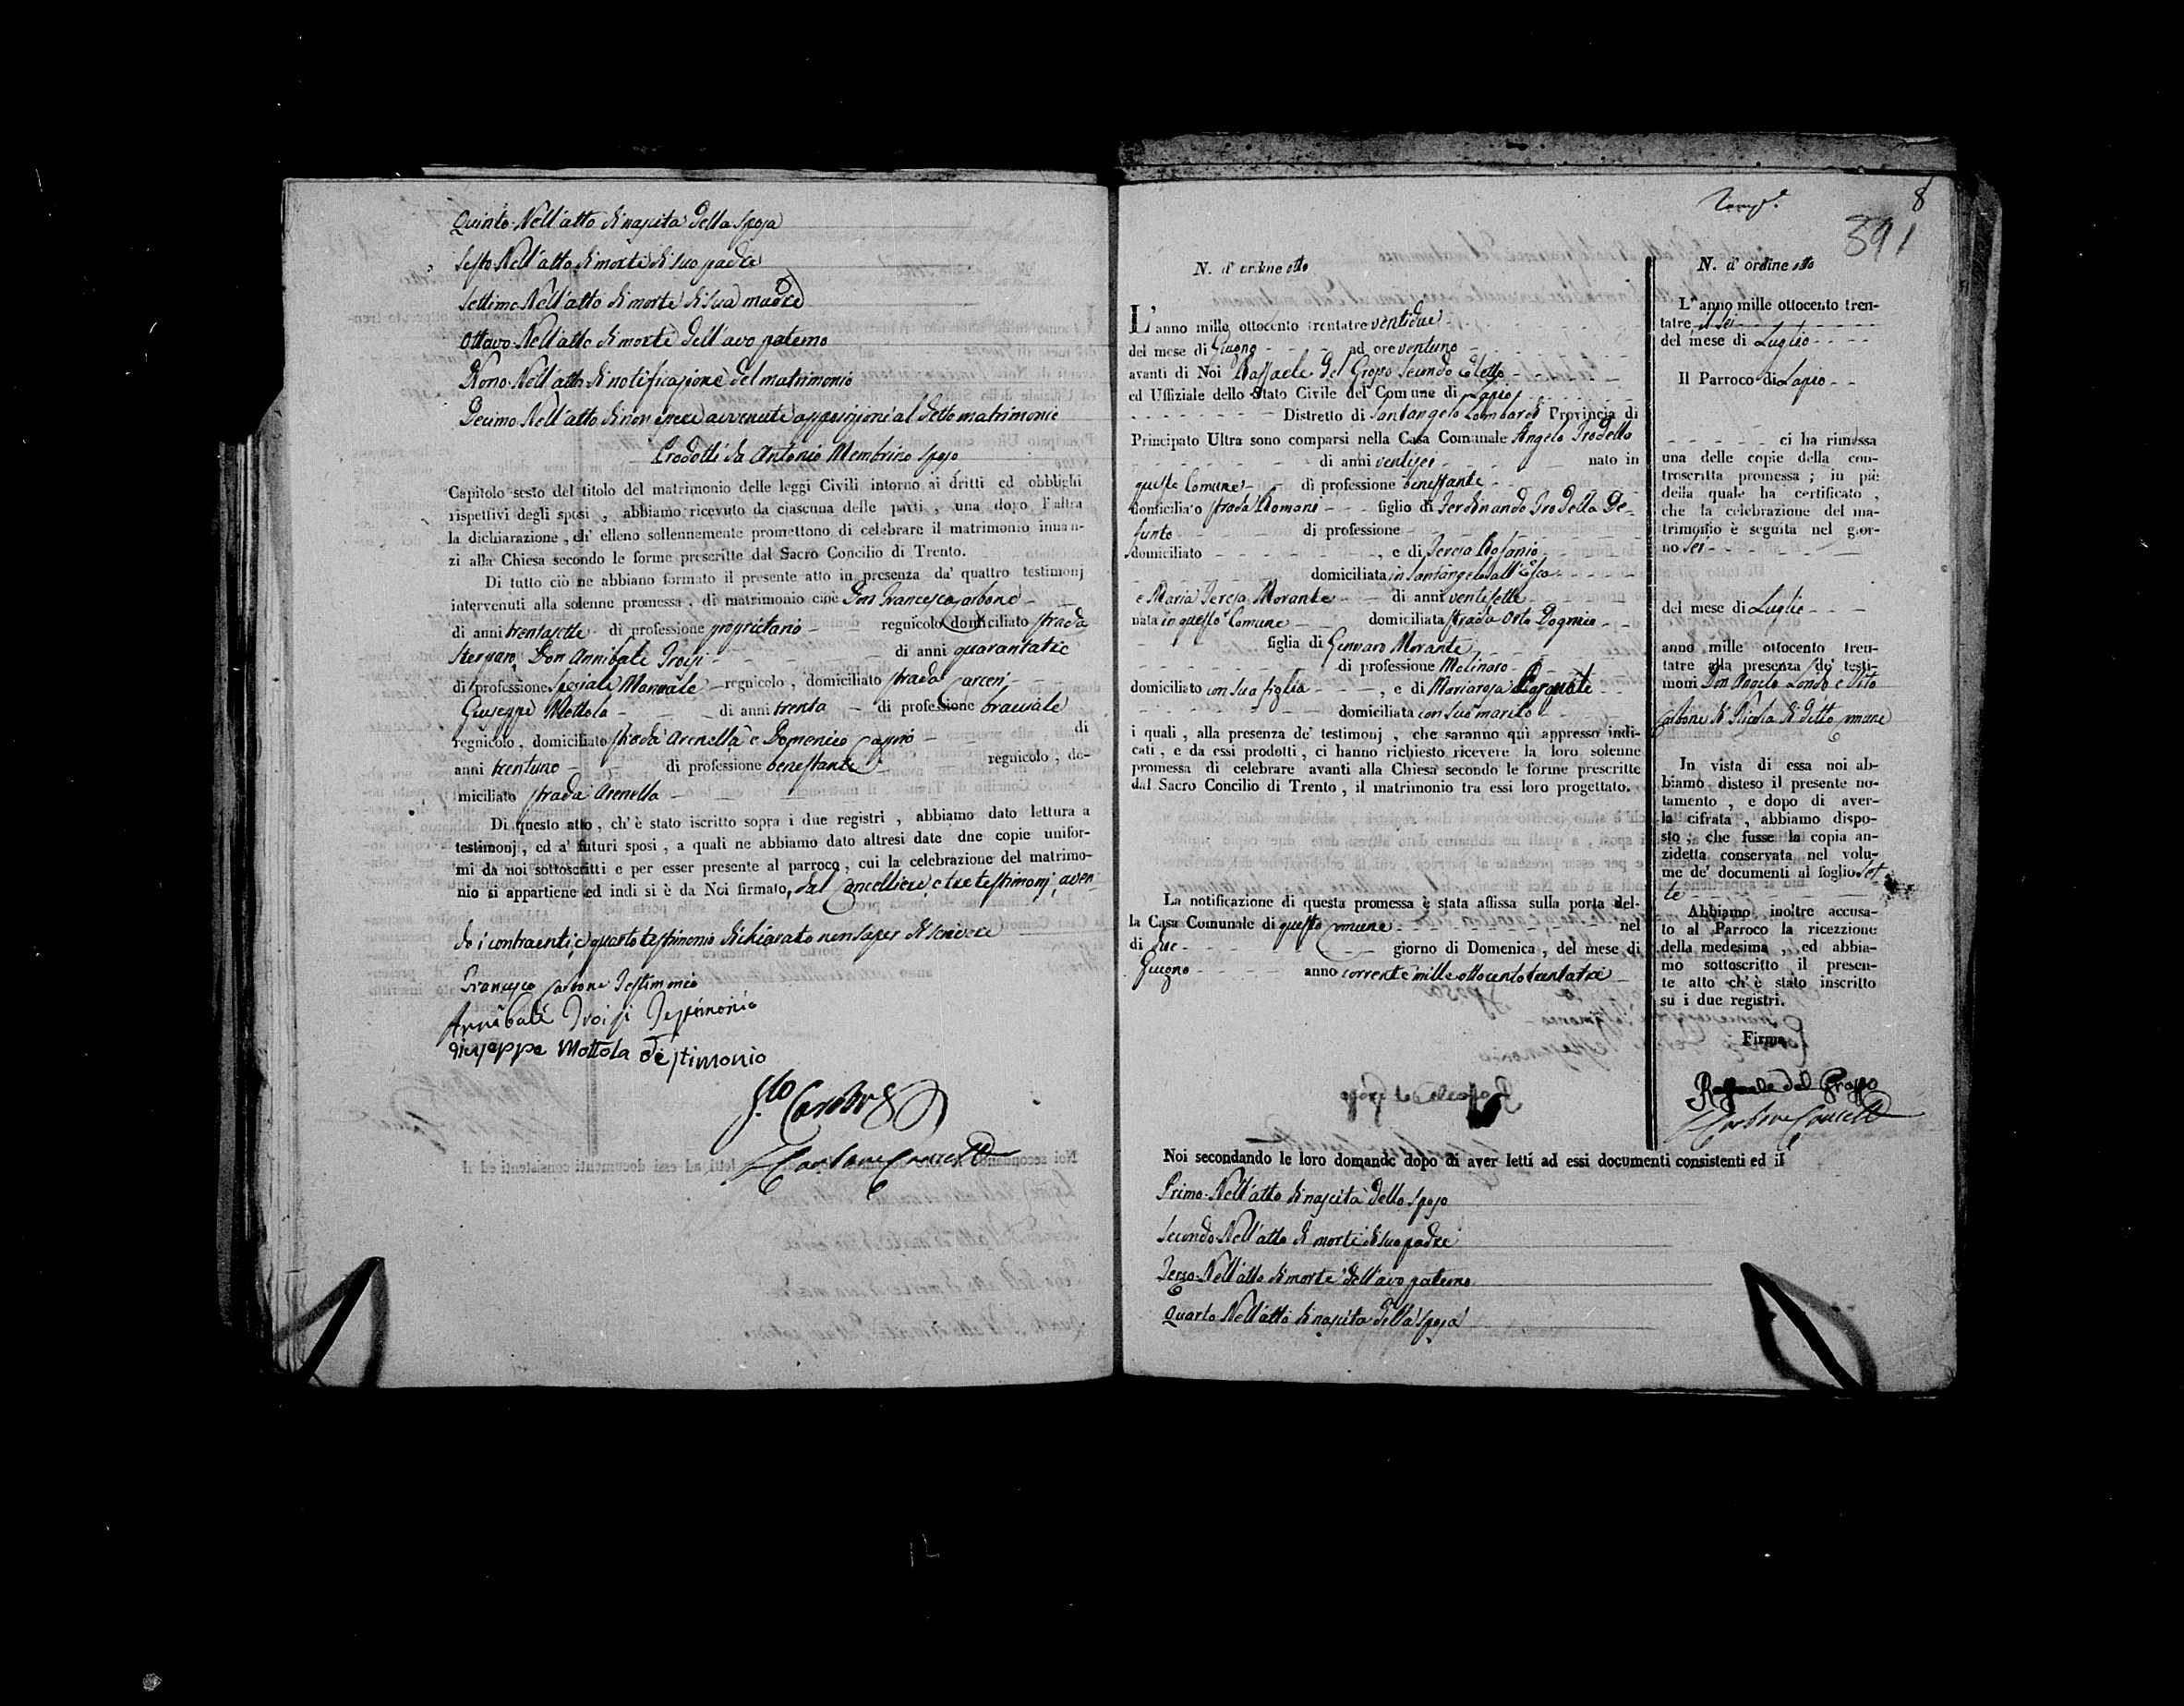 Quinto Nell'atto di nascita della sposa
Sesto Nell'atto di morte di suo padre
Settimo Nell'atto di morte di sua madre
Ottavo Nell'atto di morte dell'avo paterno
Nono Nell'atto di notificazione del matrimonio
Decimo Nell'atto di non essere avvenute opposizioni al detto matrimonio
Prodotti da Antonio Membrino sposo
Capitolo sesto del titolo del matrimonio delle leggi Civili intorno ai dritti ed obblighi
rispettivi degli sposi , abbiamo ricevuto da ciascuna delle parti , una dopo l'altra
la dichiarazione , ch' elleno sollennemente promettono di celebrare il matrimonio innan-
zi alla Chiesa secondo le forme prescritte dal Sacro Concilio di Trento.
Di tutto ciò ne abbiano formato il presente atto in presenza da' quattro testimonj
intervenuti alla solenne promessa , di matrimonio cioè Don Francesco Carbone
di anni trentasette di professione proprietario regnicolo domiciliato strada
Don Annibale Troisi di anni quarantatre
di professione speziale Manuale regnicolo , domiciliato strada Carceri
Giuseppe Mottola di anni trenta di professione bracciale
regnicolo , domiciliato strada Arenella e Domenico di
anni trentuno di professione benestante regnicolo , do-
miciliato strada Arenella
Di questo atto , ch' è stato iscritto sopra i due registri , abbiamo dato lettura a
testimonj , ed a' futuri sposi , a quali ne abbiamo dato altresi date due copie unifor-
mi da noi sottoscritti e per esser presente al parroco , cui la celebrazione del matrimo-
nio si appartiene ed indi si è da Noi firmato, dal Cancelliere e tre testimonj, aven-
do i contraenti, e quarto testimonio dichiarato non saper di scrivere
Francesco Carbone Testimonio
Annibale Troisi Testimonio
Giuseppe Mottola testimonio
Carbone Cancell
8
391
N. d' ordine otto
L'anno mille ottocento trentatre ventidue
del mese di Giugno ad ore ventuno
avanti di Noi Raffaele del Grosso secondo Eletto
ed Uffiziale dello Stato Civile del Comune di Lapio
Distretto di Santangelo Lombardi Provincia di
Principato Ultra sono comparsi nella Casa Comunale Angelo Trodella
di anni ventisei nato in
questo Comune di professione benestante
domiciliato strada Romani figlio di Ferdinando Trodella De-
funto di professione
domiciliato , e di Teresa Rosanio
domiciliata in Santangelo all'Esca
e Maria Teresa Morante di anni ventisette
nata in questo Comune domiciliata strada Orto Dognuio
figlia di Gennaro Morante
di professione Molinaro
domiciliato con sua figlia , e di Mariarosa
domiciliata con suo marito
i quali , alla presenza de' testimonj , che saranno qui appresso indi-
cati , e da essi prodotti , ci hanno richiesto ricevere la loro solenne
promessa di celebrare avanti alla Chiesa secondo le forme prescritte
dal Sacro Concilio di Trento , il matrimonio tra essi loro progettato.
La notificazione di questa promessa è stata affissa sulla porta del-
la Casa Comunale di questo Comune nel
di due giorno di Domenica , del mese di
Giugno anno corrente mille ottocento trentatre
Noi secondando le loro domande dopo di aver letti ad essi documenti consistenti ed il
Primo Nell'atto di nascita dello sposo
Secondo Nell'atto di morte di suo padre
Terzo Nell'atto di morte dell'avo paterno
Quarto Nell'atto di nascita della sposa
N. d' ordine otto
L'anno mille ottocento tren-
tatre, il sei
del mese di Luglio
Il Parroco di Lapio
ci ha rimessa
una delle copie della con-
troscritta promessa ; in piè
della quale ha certificato ,
che la celebrazione del ma-
trimonio è seguita nel gior-
no sei
del mese di Luglio
anno mille ottocento tren-
tatre alla presenza de' testi-
monj Don Angelo Londo e Vito
Carbone di Nicola di detto Comune
In vista di essa noi ab-
biamo disteso il presente no-
tamento , e dopo di aver-
la cifrata , abbiamo dispo-
sto , che fusse la copia an-
zidetta conservata nel volu-
me de' documenti al foglio set
te
Abbiamo inoltre accusa-
to al Parroco la ricezzione
della medesima , ed abbia-
mo sottoscritto il presen-
te atto ch' è stato inscritto
su i due registri.
Firma
Raffaele del Grosso
Carbone Cancell